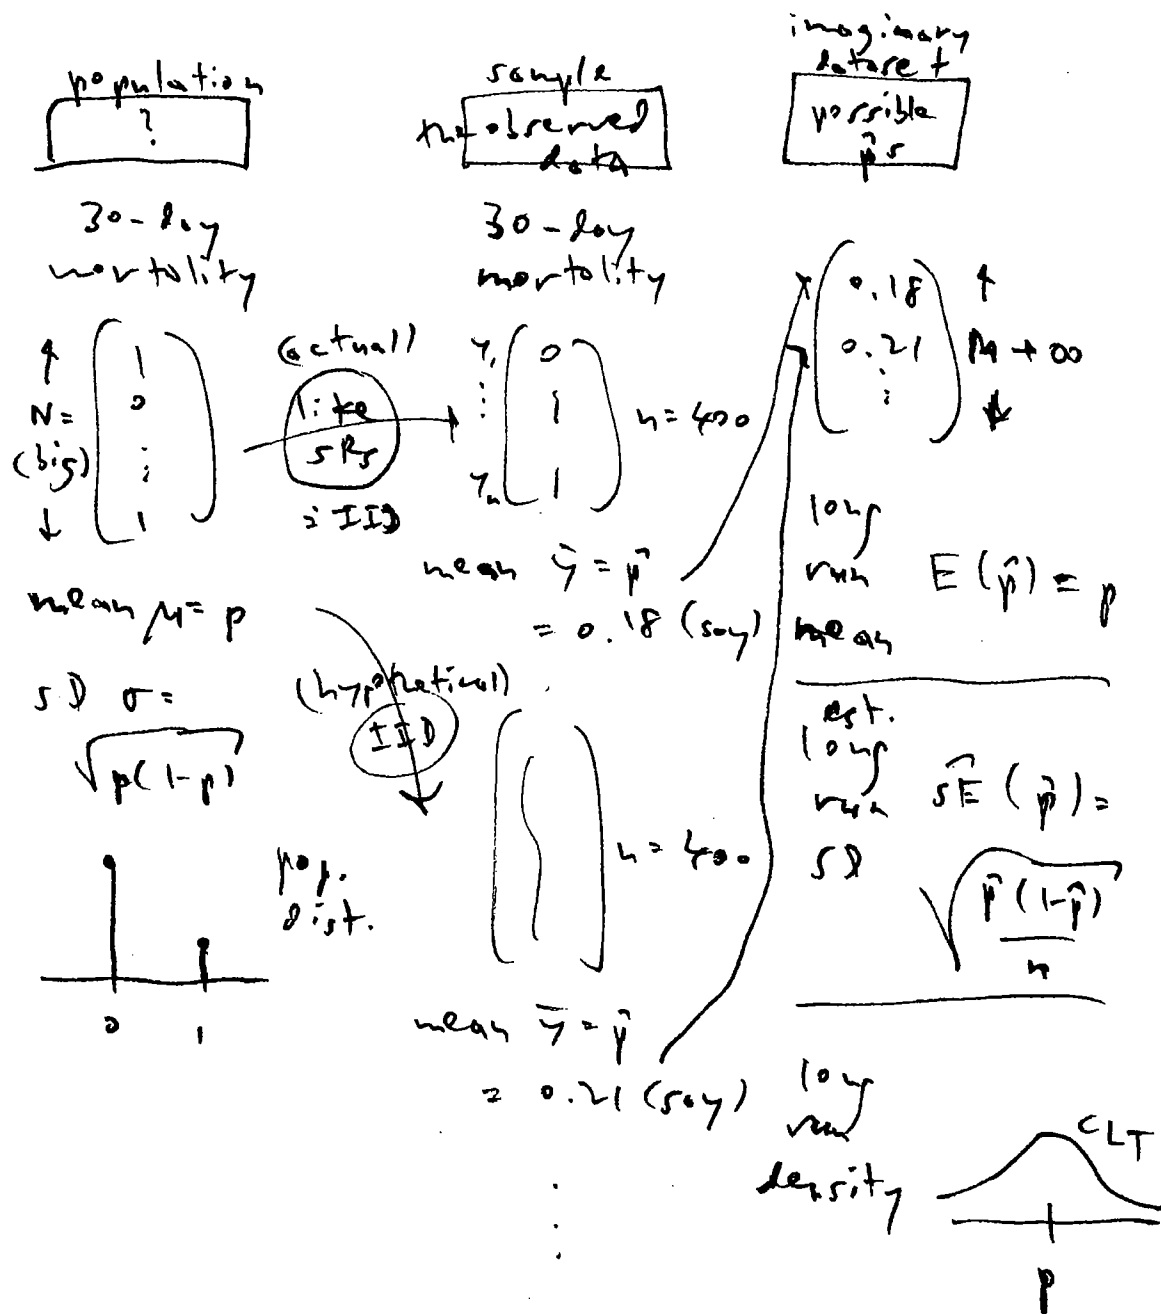 population
?
30-day
mortality
↑
N =
(big)
↓
1
0
⋮
1
mean μ = p
SD σ =
√p(1-p)
pop.
dist.
0 1
(actual)
like
SRS
= IID
(hypothetical)
IID
sample
the observed
data
30-day
mortality
y₁
⋮
yₙ
0
1
1
n = 400
mean ȳ = p̂
= 0.18 (say)
n = 400
mean ȳ = p̂
= 0.21 (say)
⋮
imaginary
dataset
possible
p̂s
0.18
0.21
⋮
↑
M → ∞
↓
long
run
mean
E(p̂) = p
est.
long
run
SD
ŜE(p̂) =
√p̂(1-p̂)/n
long
run
density
CLT
p